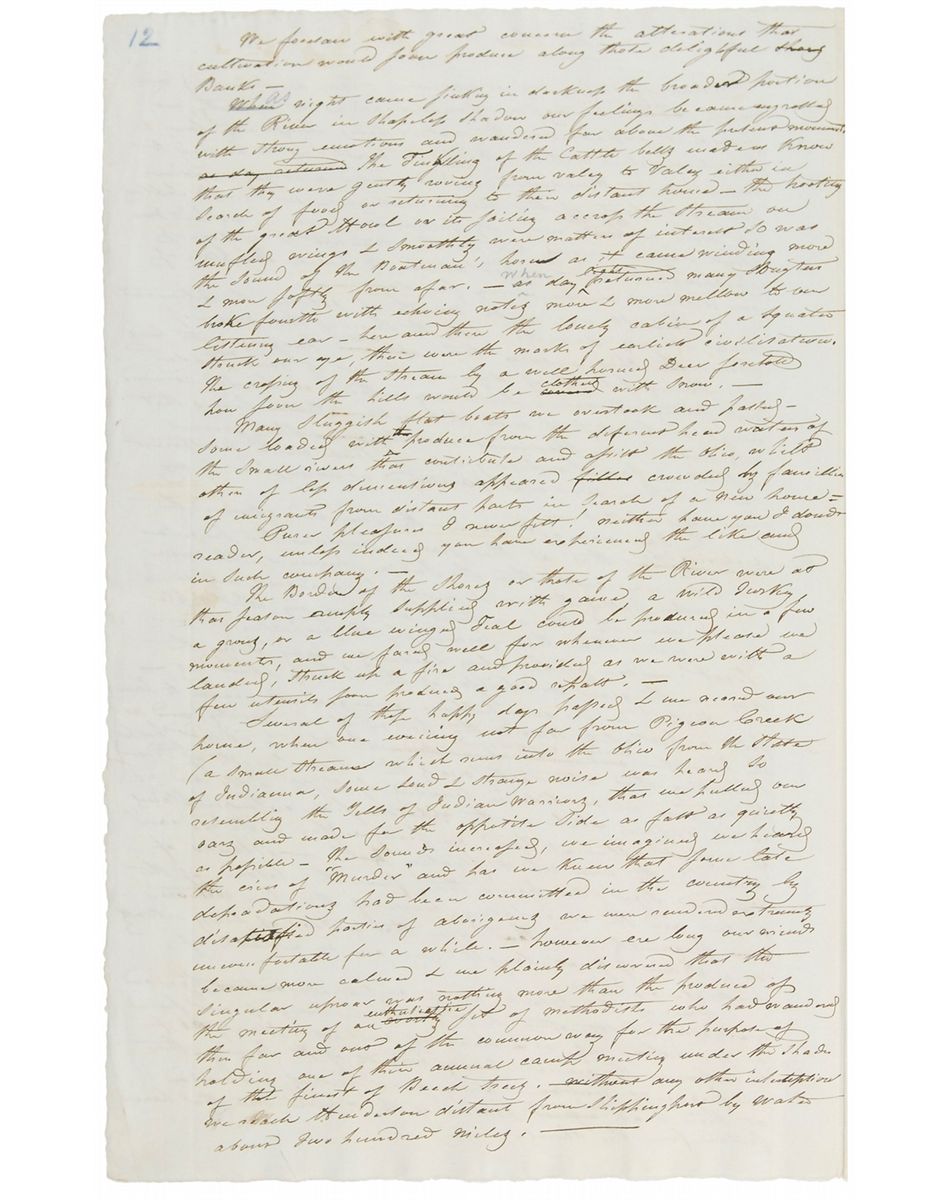 12
We foresaw with great concern the alterations that
cultivation would soon produce along those delightful
Banks —
When as night came sinking in darkness the broader portion
of the River in shapeless shadow our feelings became engrossed
with strong emotions and wandered far above the present moments
as day returned The Tinkling of the Cattle bells made us know
that they were gently roving from valey to Valey either in
search of food or returning to their distant house — the hooting
of the great Howl or its sailing accross the stream on
muffled wings & smoothly were matters of interest so was
the sound of the Boatman's horn as it came winding more
& more softly from afar. — when as day light returned many Songters
broke fourth with echoing notes more & more mellow to our
listening ear — here and there the lonely cabin of a squater
struck our eye, there were the marks of earliest civilisation.
The crossing of the stream by a well horned Deer foretold
how soon the hills would be clothed covered with snow. —
Many Sluggish flat boats we overtook and passed —
some loaded with the produce from the different head waters of
the small rivers that contribute and assist the Ohio, whilst
others of less dimentions appeared filled crowded by families
of emigrants from distant parts in search of a new home =
Purer pleasures I never felt! neither have you I doubt
reader, unless indeed you have experienced the like and
in such company. —
The Borders of the shores or those of the River were at
that season amply supplied with game a wild Turkey
a grous, or a blue winged Teal could be produced in a few
moments, and we fared well for whenever we please we
landed, struck up a fire and provided as we were with a
few utensils soon produced a good repast. —
Several of these happy days passed & we neared our
home, when one evening not far from Pigeon Creek
(a small stream which runs into the Ohio from the State
of Indianna, some loud & strange noise was heard so
resembling the Yells of Indian Warriors, that we pulled our
oars and made for the oppetite side as fast as quietly
as possible — The sounds increased, we imagined we heard
the cries of "Murder" and has we knew that some late
depradations had been committed in the country by
disatisfied parties of aborigenes we were rendered extremely
uncomfortable for a while. — however ere long our minds
became more calmed & we plainly discovered that the
singular uproar was nothing more than the produced of
the meeting of an enthusiastic set of methodists who had wandered
thus far and out of the common way for the purpose of
holding one of their annual camp meeting under the shade
of the finest of Beech trees. — without any other interuption
we reach Henderson distant from Shippingport by water
about Two hundred Miles.